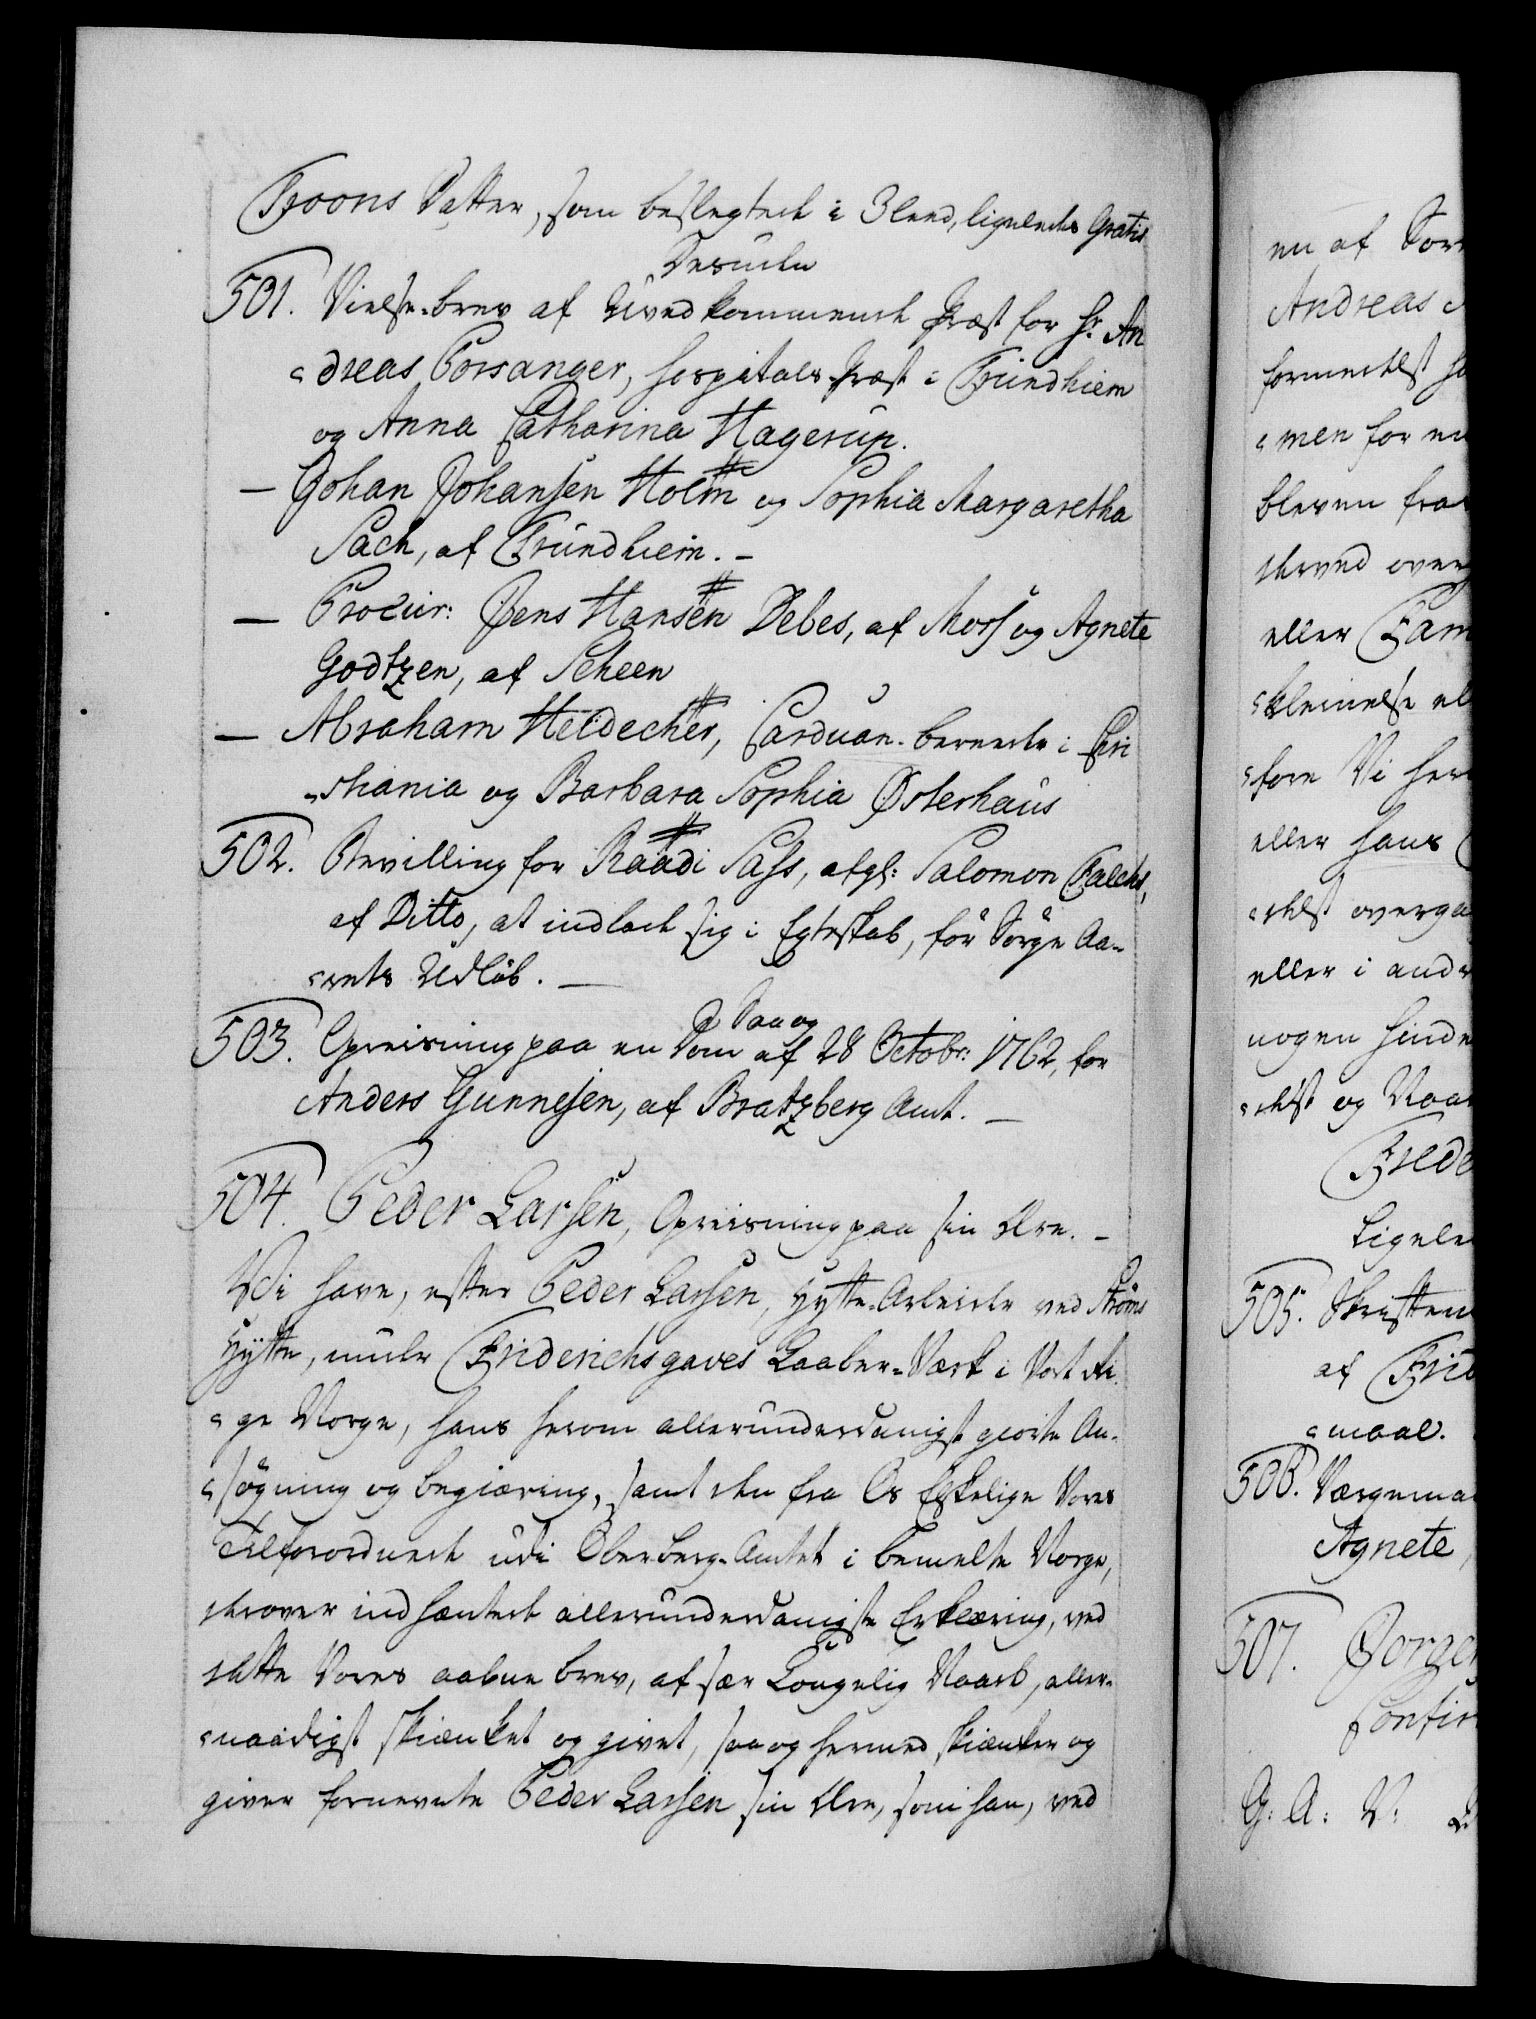 Troons Datter, som beslegtede i 3 leed, ligeledes Gratis
Desuden
501. Vielse-brev af Uvedkommende Præst for Hr. An
dreas Porsanger, Hospitals-Præst i Trundhiem
og Anna Catharina Hagerup.
— Johan Johansen Holm og Sophia Margaretha
Sach, af Trundhiem. —
— Procur: Jens Hansen Debes, af Moss og Agnete
Godtzen, af Scheen
— Abraham Heldecher, Carduan-bereeder i Chri
stiania og Barbara Sophia Østerhaus
502. Bevilling for Raadi Sass, afgl: Salomon Falchs,
af Ditto, at indlade sig i Egteskab, før Sørge Aa-
rets Udløb. —
Saa og
503. Opreisning paa en Dom af 28 Octobr: 1762, for
Anders Gunnesen, af Bratzberg Amt. —
504. Peder Larsen, Opreisning paa sin Ære. —
Vi have, efter Peder Larsen, Hytte-Arbeider ved Strøms
Hytte, under Friderichsgaves Kaaber-Værk i Vort Ri-
ge Norge, hans herom allerunderdanigst giorte An-
søgning og begiæring, samt den fra Os Elskelige Vores
Tilforordnede udi Oberberg-Amtet i bemelte Norge,
derover indhæntede allerunderdanigste Erklæring, ved
dette Vores aabne brev, af sær Kongelig Naade, aller-
naadigst skiænket og givet, saa og hermed skiænker og
giver fornevnte Peder Larsen sin Ære, som han, ved
en af Sor
Andreas
formedelst
men for
bleven fra
derved over
eller Fam
kleinelse el
fore Vi her
eller hans
delst overga
eller i andr
nogen hinde
delst og Naa
Frede
Ligele
505. Skriften
af Frid
maal.
506. Værgema
Agnete,
507. Jørgen
Confir
G: A: V: